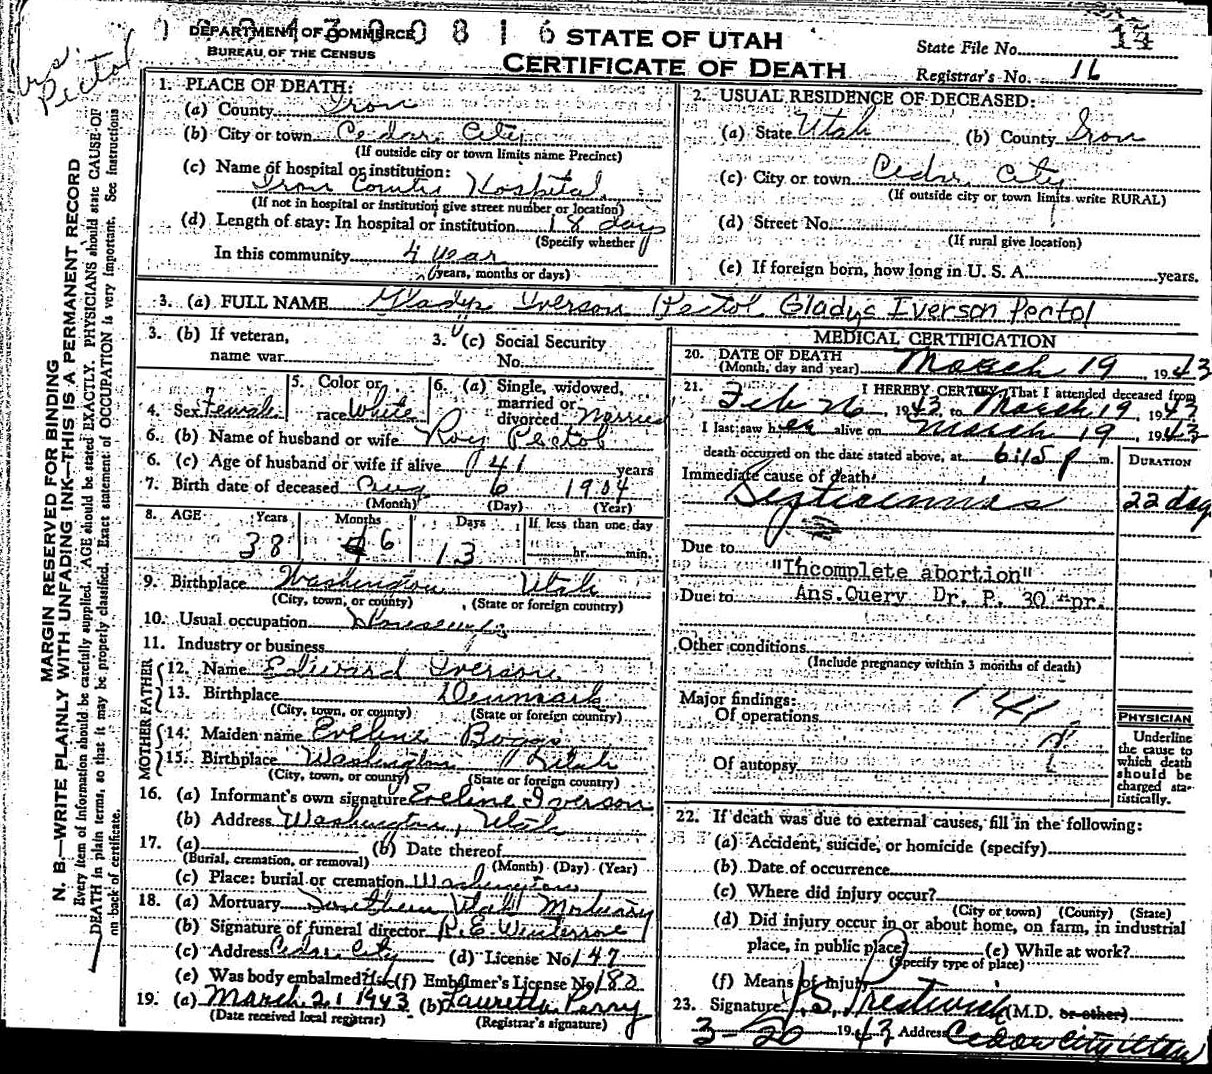 0 6 0 4 3 0 0 8 1 6
DEPARTMENT OF COMMERCE
BUREAU OF THE CENSUS
STATE OF UTAH
CERTIFICATE OF DEATH
State File No. 14
Registrar's No. 16
Mrs Pectol
MARGIN RESERVED FOR BINDING
N. B.—WRITE PLAINLY WITH UNFADING INK—THIS IS A PERMANENT RECORD
Every item of information should be carefully supplied. AGE should be stated EXACTLY. PHYSICIANS should state CAUSE OF
DEATH in plain terms, so that it may be properly classified. Exact statement of OCCUPATION is very important. See Instructions
on back of certificate.
1. PLACE OF DEATH:
(a) County Iron
(b) City or town Cedar City
(If outside city or town limits name Precinct)
(c) Name of hospital or institution:
Iron County Hospital
(If not in hospital or institution give street number or location)
(d) Length of stay: In hospital or institution 18 days
(Specify whether
In this community 4 year
years, months or days)
2. USUAL RESIDENCE OF DECEASED:
(a) State Utah (b) County Iron
(c) City or town Cedar City
(If outside city or town limits write RURAL)
(d) Street No.
(If rural give location)
(e) If foreign born, how long in U. S. A. years.
3. (a) FULL NAME Gladys Iverson Pectol Gladys Iverson Pectol
3. (b) If veteran,
name war
3. (c) Social Security
No.
4. Sex Female
5. Color or
race White
6. (a) Single, widowed,
married or
divorced Married
6. (b) Name of husband or wife Roy Pectol
6. (c) Age of husband or wife if alive 41 years
7. Birth date of deceased Aug 6 1904
(Month) (Day) (Year)
8. AGE Years Months Days If less than one day
38 6 13 hr. min.
9. Birthplace Washington Utah
(City, town, or county) (State or foreign country)
10. Usual occupation Housewife
11. Industry or business
FATHER
12. Name Edward Iverson
13. Birthplace Denmark
(City, town, or county) (State or foreign country)
MOTHER
14. Maiden name Eveline Boggs
15. Birthplace Washington Utah
(City, town, or county) (State or foreign country)
16. (a) Informant's own signature Eveline Iverson
(b) Address Washington, Utah
17. (a) (b) Date thereof
(Burial, cremation, or removal) (Month) (Day) (Year)
(c) Place: burial or cremation Washington
18. (a) Mortuary Southern Utah Mortuary
(b) Signature of funeral director
(c) Address Cedar City (d) License No. 147
(e) Was body embalmed? Yes (f) Embalmer's License No. 182
19. (a) March 21 1943 (b) Lauretta Perry
(Date received local registrar) (Registrar's signature)
MEDICAL CERTIFICATION
20. DATE OF DEATH
(Month, day and year) March 19, 1943
21. I HEREBY CERTIFY, That I attended deceased from
Feb 26, 1943 to March 19, 1943
I last saw her alive on March 19, 1943
death occurred on the date stated above, at 6:15 P m.
DURATION
Immediate cause of death
Septicemia 22 day
Due to
"Incomplete abortion"
Due to Ans.Query Dr. P. 30 Apr.
Other conditions
(Include pregnancy within 3 months of death)
Major findings: 141
Of operations
Of autopsy
PHYSICIAN
Underline
the cause to
which death
should be
charged sta-
tistically.
22. If death was due to external causes, fill in the following:
(a) Accident, suicide, or homicide (specify)
(b) Date of occurrence
(c) Where did injury occur?
(City or town) (County) (State)
(d) Did injury occur in or about home, on farm, in industrial
place, in public place? (e) While at work?
(Specify type of place)
(f) Means of injury
23. Signature J. S. Prestwich (M.D. or other)
3-20 1943 Address Cedar City Utah